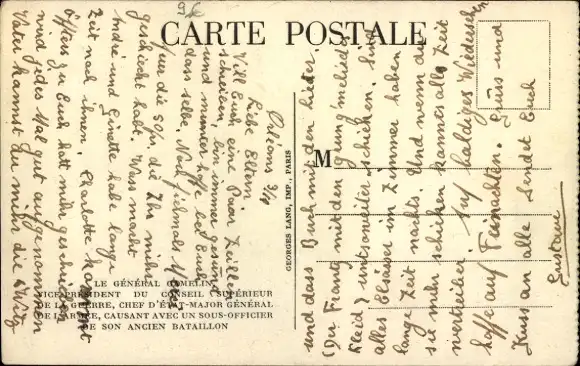 CARTE POSTALE
Orléans 3/
Liebe Eltern
Will Euch eine Paar Zeillen
schreiben, bin immer gesund
und munter hoffe bei Euch
das selbe. Noch fielmals
feur die 50 frs, die Ihr mihr
geschickt habt. Wass macht
André und Ginette habe lange
Zeit nach ihnen. Charlotte kommt
öfters zu Euch hatt mihr geschrieben
wird jedes Mal gut aufgenommen
Vater kannst du mihr die
und dass Buch mit den Lieder
M
Kleid schicken. Sind
alles Elsässer im Zimmer haben
lang Zeit nachts. Und wenn du
sie mihr schicken kannst alls Zeit
vertreiber. Auf baldiges Wiedersehen
hoffe auf Grüss und
Kuss an alle sendet Euch
Gustave
GEORGES LANG, IMP., PARIS
LE GÉNÉRAL GAMELIN
VICE-PRÉSIDENT DU CONSEIL SUPÉRIEUR
DE LA GUERRE, CHEF D'ÉTAT-MAJOR GÉNÉRAL
DE L'ARMÉE, CAUSANT AVEC UN SOUS-OFFICIER
DE SON ANCIEN BATAILLON